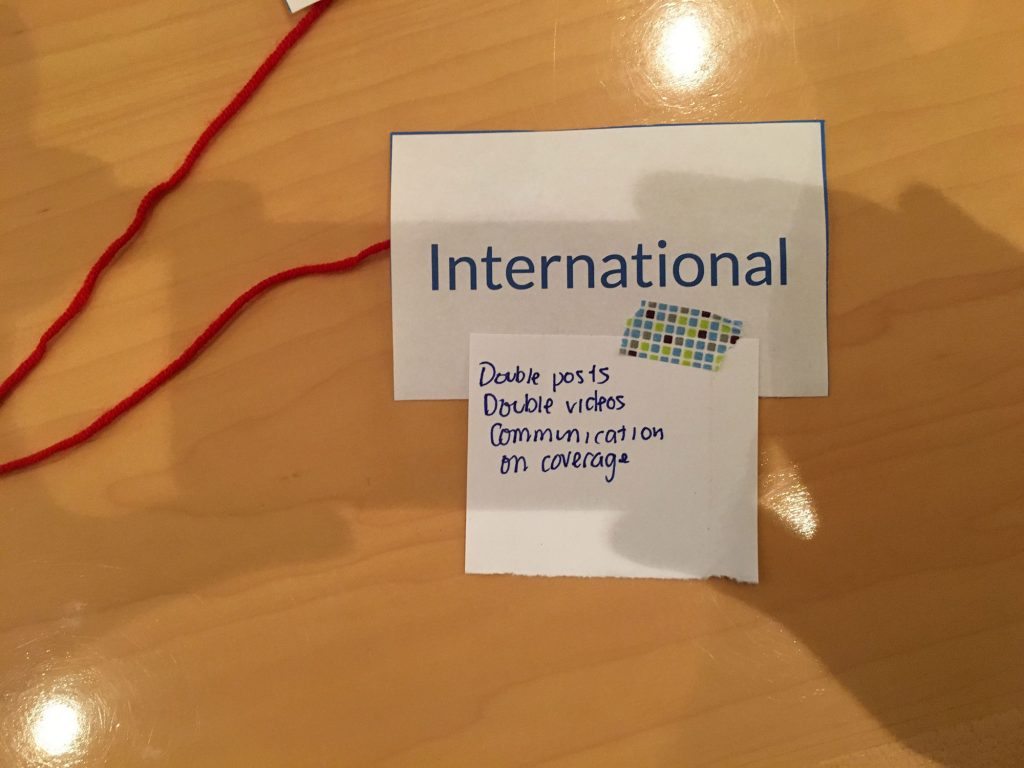 International
Double posts
Double videos
Communication
on coverage